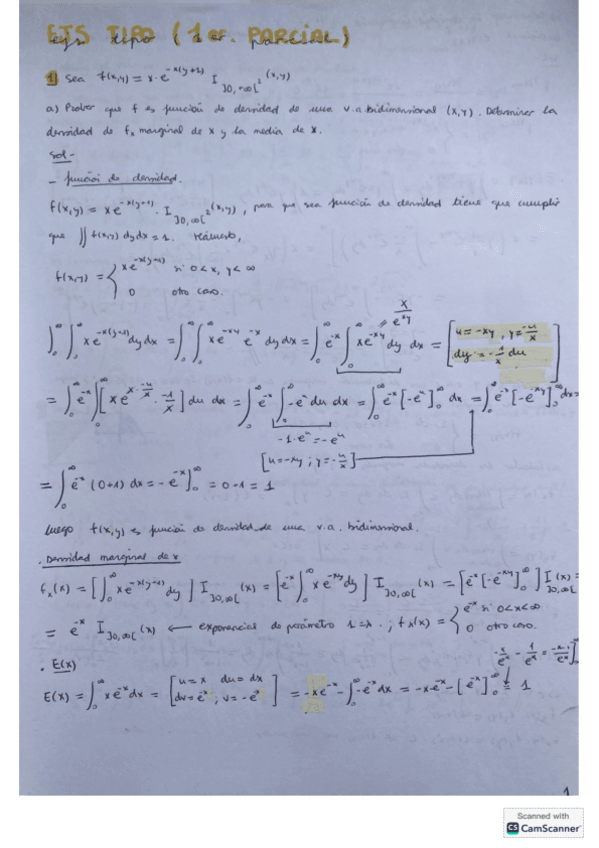 EJS TIPO (1er. PARCIAL)
1) Sea f(x,y) = x·e^{-x(y+1)} I_{]0,+∞[²}(x,y)
a) Probar que f es función de densidad de una v.a bidimensional (x,y). Determinar la
densidad de f_x marginal de x y la media de x.
Sol-
- función de densidad.
f(x,y) = xe^{-x(y+1)} · I_{]0,∞[²}(x,y), para que sea función de densidad tiene que cumplir
que ∬ f(x,y) dy dx = 1.
f(x,y) = { xe^{-x(y+1)} si 0<x,y<∞
0 otro caso.
x/e^{xy}
∫₀^∞ ∫₀^∞ xe^{-x(y+1)} dy dx = ∫₀^∞ ∫₀^∞ xe^{-xy} e^{-x} dy dx = ∫₀^∞ e^{-x} ∫₀^∞ xe^{-xy} dy dx = [u=-xy, y=-u/x
dy = -1/x du]
= ∫₀^∞ e^{-x} ∫₀^∞ [xe^{x·-u/x} · -1/x] du dx = ∫₀^∞ e^{-x} ∫₀^∞ -e^u du dx = ∫₀^∞ e^{-x} [-e^u]₀^∞ dx = ∫₀^∞ e^{-x} [-e^{-xy}]₀^∞ dx =
-1·e^u = -e^u
[u=-xy ; y=-u/x]
= ∫₀^∞ e^{-x} (0+1) dx = -e^{-x}]₀^∞ = 0-1 = 1
Luego f(x,y) es función de densidad de una v.a. bidimensional.
. Densidad marginal de x
f_x(x) = [∫₀^∞ xe^{-x(y+1)} dy] I_{]0,∞[}(x) = [e^{-x} ∫₀^∞ xe^{-xy} dy] I_{]0,∞[}(x) = [e^{-x} [-e^{-xy}]₀^∞] I_{]0,∞[}(x) =
= e^{-x} I_{]0,∞[}(x) ← exponencial de parámetro 1=λ. ; f_x(x) = { e^{-x} si 0<x<∞
0 otro caso.
. E(x)
E(x) = ∫₀^∞ xe^{-x} dx = [u=x du=dx
dv=e^{-x} ; v=-e^{-x}] = -xe^{-x} - ∫₀^∞ -e^{-x} dx = -x·e^{-x} - [e^{-x}]₀^∞ = 1
1
Scanned with
CS CamScanner